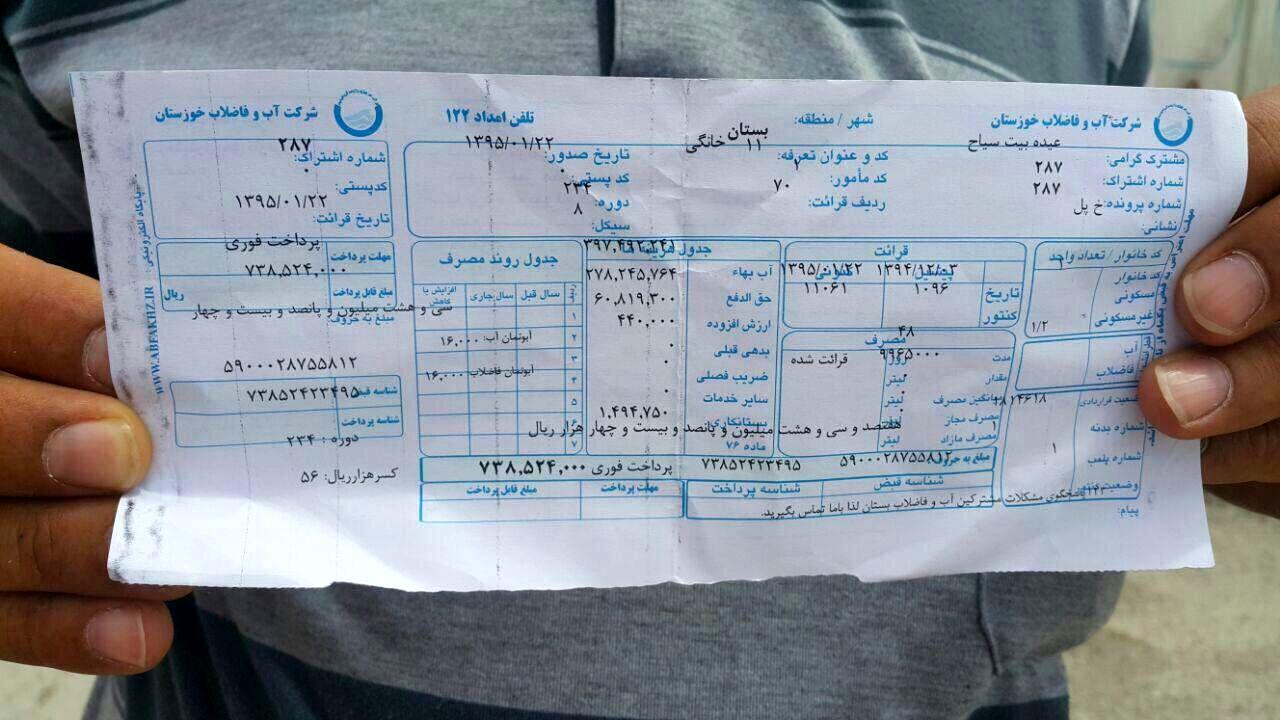 شرکت آب و فاضلاب خوزستان
مشترک گرامی: عبده بیت سیاح
شماره اشتراک: ۲۸۷
شماره پرونده: ۲۸۷
نشانی: خ پل
شهر / منطقه: بستان
کد و عنوان تعرفه: ۱۱ خانگی
کد مأمور: ۲
ردیف قرائت: ۷۰
تلفن امداد ۱۲۲
تاریخ صدور: ۱۳۹۵/۰۱/۲۲
کد پستی: ۰
دوره: ۲۳۴
سیکل: ۸
کد خانوار / تعداد واحد
کد خانوار
مسکونی
غیرمسکونی
۱/۲
آب
فاضلاب
وضعیت قراردادی
شماره بدنه
شماره پلمب ۱
قرائت
پیشین کنونی
تاریخ ۱۳۹۴/۱۲/۰۳ ۱۳۹۵/۰۱/۲۲
کنتور ۱۰۹۶ ۱۱۰۶۱
مصرف
مدت ۴۸ روز
مقدار ۹۹۶۵۰۰۰ لیتر قرائت شده
میانگین مصرف ۰ لیتر
مصرف مجاز ۰ لیتر
مصرف مازاد لیتر
۳۹۷,۴۹۲,۲۴۱
آب بهاء ۲۷۸,۲۴۵,۷۶۴
حق الدفع ۶۰,۸۱۹,۳۰۰
ارزش افزوده ۴۴۰,۰۰۰
بدهی قبلی ۰
ضریب فصلی ۰
سایر خدمات ۰
بستانکاری ۱,۴۹۴,۷۵۰
ماده ۷۶
جدول روند مصرف
ردیف سال قبل سال جاری افزایش یا کاهش
۱
۲
۳
۴
۵
۶
۷
آبونمان آب: ۱۶,۰۰۰
آبونمان فاضلاب: ۱۶,۰۰۰
هفتصد و سی و هشت میلیون و پانصد و بیست و چهار هزار ریال
مبلغ به حروف
۵۹۰۰۰۲۸۷۵۵۸۱۲ ۷۳۸۵۲۴۲۳۴۹۵ پرداخت فوری ۷۳۸,۵۲۴,۰۰۰
شناسه قبض شناسه پرداخت مهلت پرداخت مبلغ قابل پرداخت
پیام:
پاسخگوی مشکلات مشترکین آب و فاضلاب بستان لذا باما تماس بگیرید.
شرکت آب و فاضلاب خوزستان
شماره اشتراک: ۲۸۷
کدپستی: ۰
تاریخ قرائت: ۱۳۹۵/۰۱/۲۲
مهلت پرداخت پرداخت فوری
مبلغ قابل پرداخت ۷۳۸,۵۲۴,۰۰۰ ریال
سی و هشت میلیون و پانصد و بیست و چهار
مبلغ به حروف:
۵۹۰۰۰۲۸۷۵۵۸۱۲
شناسه قبض ۷۳۸۵۲۴۲۳۴۹۵
شناسه پرداخت
دوره : ۲۳۴
کسر هزار ریال: ۵۶
پایگاه الکترونیکی: WWW.ABFAKHZ.IR